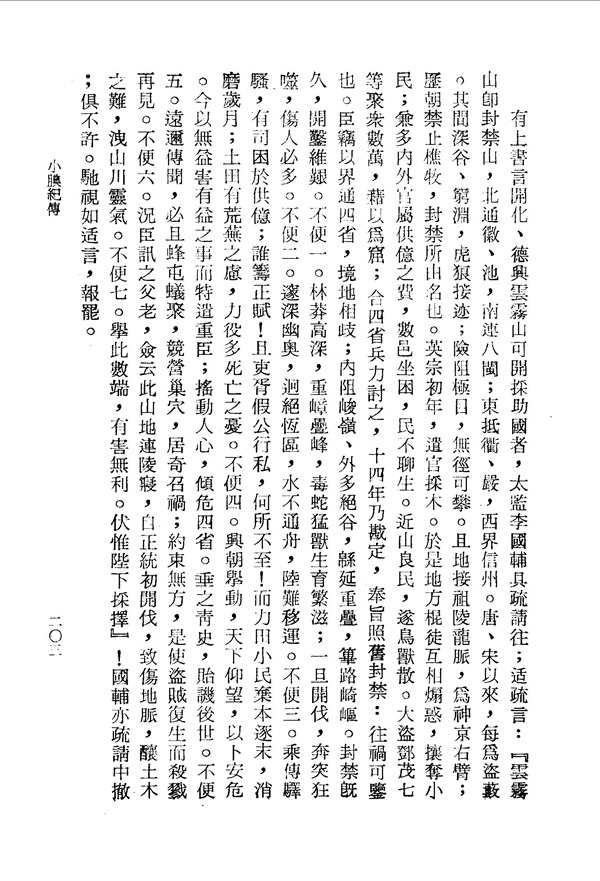 有上書言開化、德興雲霧山可開採助國者，太監李國輔具疏請往；适疏言：『雲霧
山卽封禁山，北通徽、池，南連八閩；東抵衢、嚴，西界信州。唐、宋以來，每爲盜藪
。其間深谷、窮淵，虎狼接迹；險阻極目，無徑可攀。且地接祖陵龍脈，爲神京右臂；
歷朝禁止樵牧，封禁所由名也。英宗初年，遣官採木。於是地方棍徒互相煽惑，攘奪小
民；兼多內外官屬供億之費，數邑坐困，民不聊生。近山良民，遂鳥獸散。大盜鄧茂七
等聚衆數萬，藉以爲窟；合四省兵力討之，十四年乃戡定，奉旨照舊封禁：往禍可鑒
也。臣竊以界通四省，境地相歧；內阻峻嶺、外多絕谷，緜延重疊，篳路崎嶇。封禁旣
久，開鑿維艱。不便一。林莽高深，重嶂疊峰，毒蛇猛獸生育繁滋；一旦開伐，奔突狂
噬，傷人必多。不便二。邃深幽奧，迥絕恆區，水不通舟，陸難移運。不便三。乘傳驛
騷，有司困於供億；誰籌正賦！且吏胥假公行私，何所不至！而力田小民棄本逐末，消
磨歲月；土田有荒蕪之慮，力役多死亡之憂。不便四。興朝舉動，天下仰望，以卜安危
。今以無益害有益之事而特遣重臣；搖動人心，傾危四省。垂之靑史，貽譏後世。不便
五。遠邇傳聞，必且蜂屯蟻聚，競營巢穴，居奇召禍；約束無方，是使盜賊復生而殺戮
再見。不便六。況臣訊之父老，僉云此山地連陵寢，自正統初開伐，致傷地脈，釀土木
之難，洩山川靈氣。不便七。舉此數端，有害無利。伏惟陛下採擇』！國輔亦疏請中撤
；俱不許。馳視如适言，報罷。
小腆紀傳
二〇三